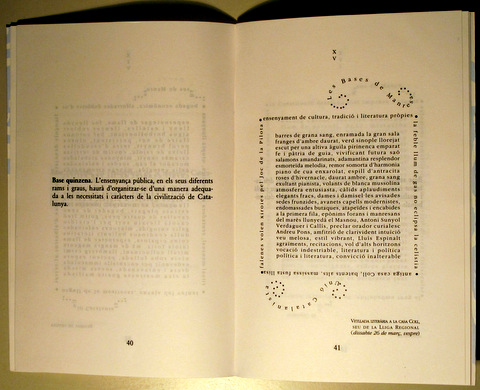 Base quinzena. L'ensenyança pública, en els seus diferents
rams i graus, haurà d'organitzar-se d'una manera adequa-
da a les necessitats i caràcters de la civilització de Cata-
lunya.
40
X
V
Les Bases de Manre
ensenyament de cultura, tradició i literatura pròpies
la feble llum de gas no eclipsa la celístia
barres de grana sang, enramada la gran sala
franges d'ambre daurat, verd sinople llorejat
escut per una altiva àguila pirinenca emparat
fe i pàtria de guia, vivificant futura saó
salamons amandarinats, adamantina resplendor
esmorteïda melodia, remor somorta d'harmonia
piano de cua enxarolat, espill d'antracita
roses d'hivernacle, decorat ambre, grana sang
exultant pianista, volants de blanca mussolina
atmosfera entusiasta, càlids aplaudiments
elegants fracs, dames i damisel·les avisades
sedes frunzides, avanera capells modernistes,
endomassades butaques, atapeïdes i encabides
a la primera fila, epònims forans i manresans
del marès llunyeda el Masnou, Antoni Sunyol
Verdaguer i Callís, preclar orador curialesc
Andreu Pons, amfitrió de clarivident intuïció
veu melosa, estil vibrant, Lluís Espinalt
agraïments, recitacions, vol d'alts horitzons
vocació indestriable, literatura i política
política i literatura, convicció inalterable
antiga casa Coll, batents alt, massissa fusta llisa
falenes volen airoses pel joc de la Pilota
Catalanis
Vetllada literària a la casa Coll,
seu de la Lliga Regional
(dissabte 26 de març, vespre)
41